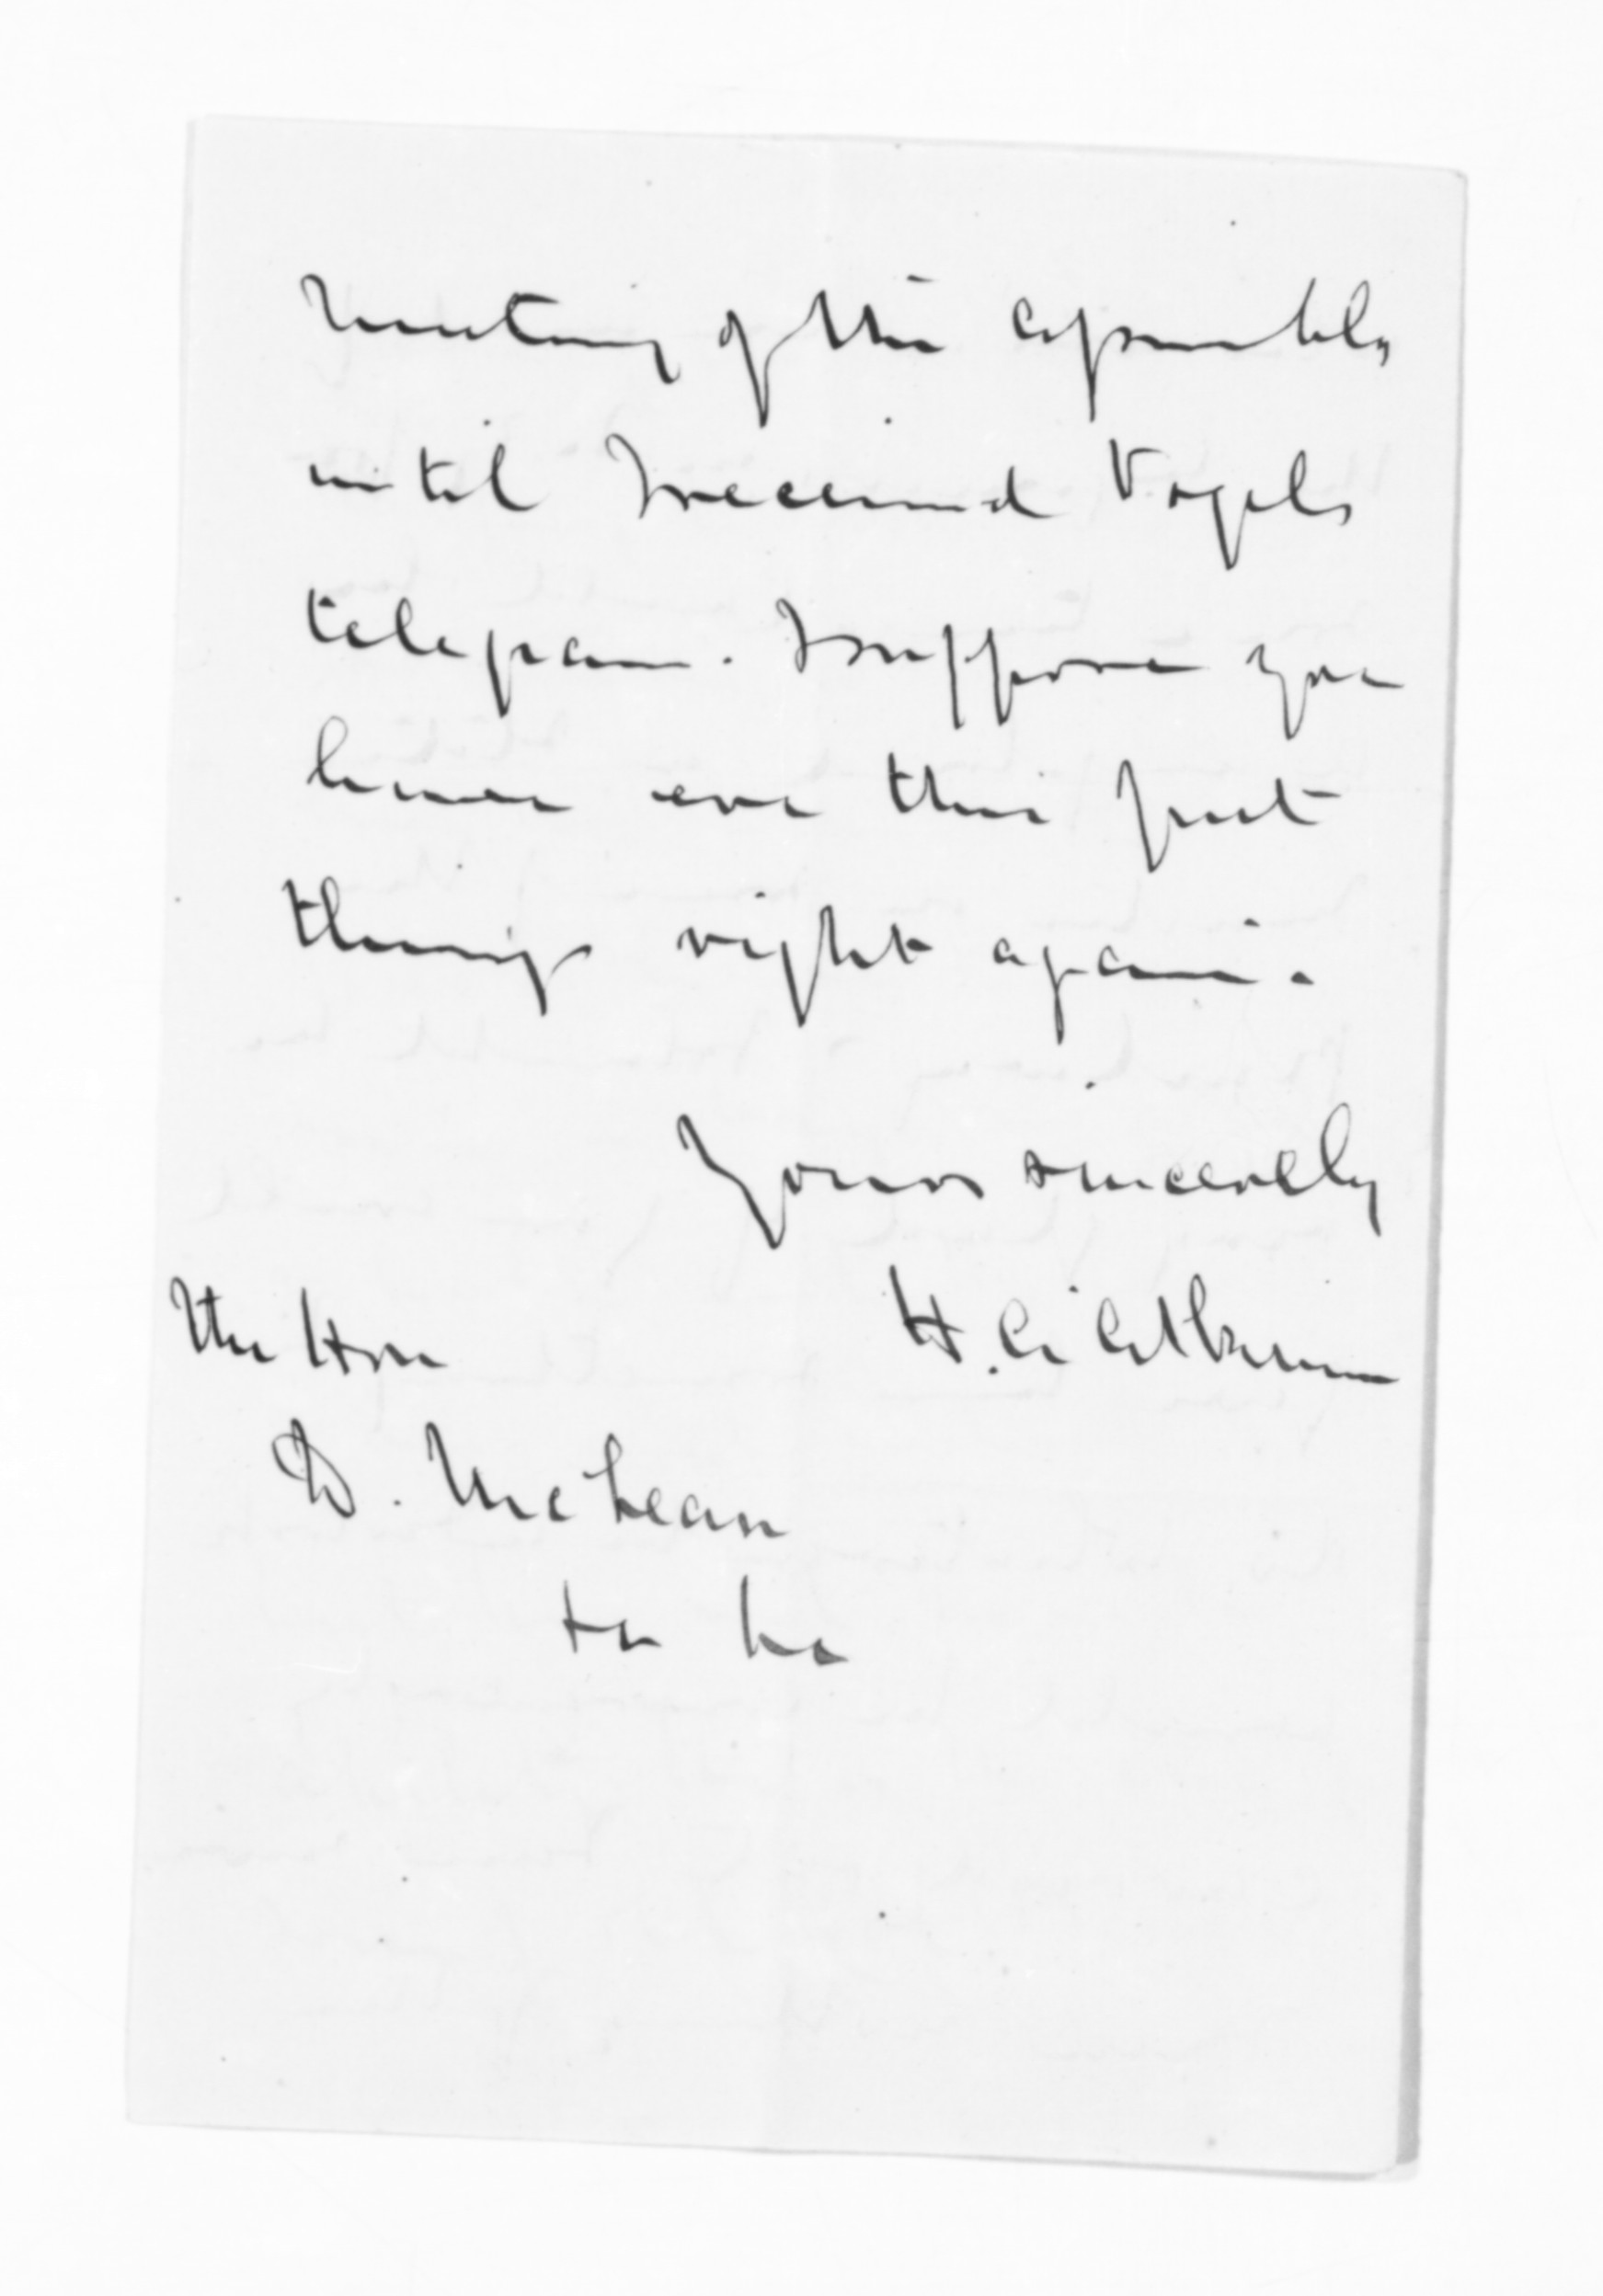 Meeting of the Assembly
until I received Vogels
telegram. I suppose you
have ere this put
things right again.
Yours sincerely
H. A. Atkinson
The Hon
D. McLean